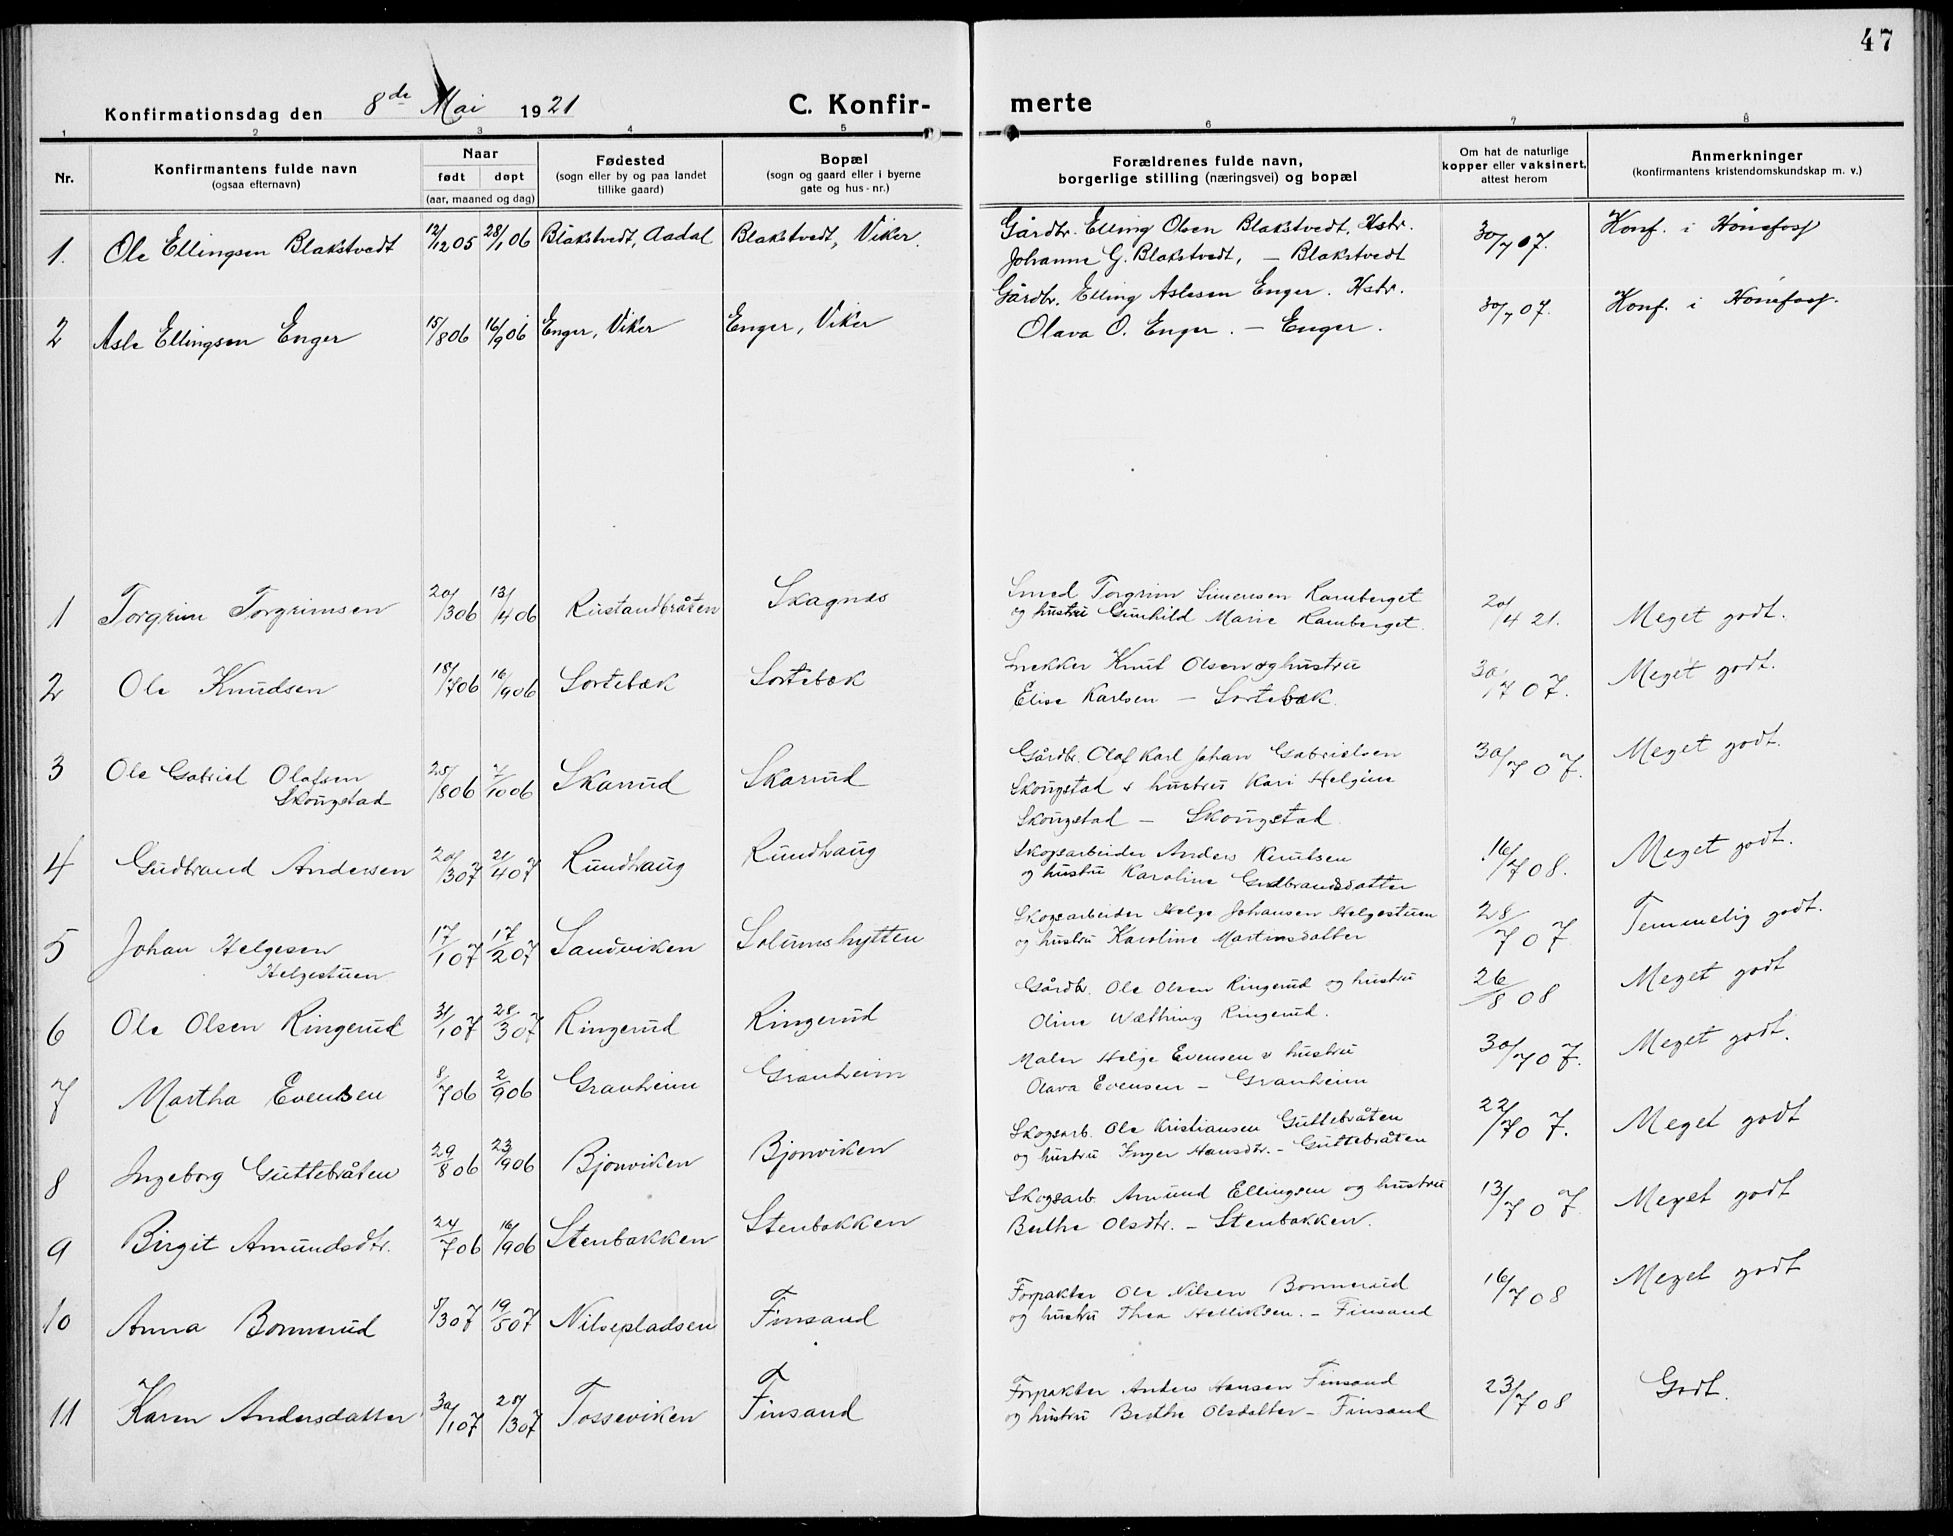 47
Konfirmationsdag den 8de Mai 1921 C. Konfir- merte
1 2 3 4 5 6 7 8
Nr. Konfirmantens fulde navn (ogsaa efternavn) Naar født døpt (aar, maaned og dag) Fødested (sogn eller by og paa landet tillike gaard) Bopæl (sogn og gaard eller i byerne gate og hus-nr.) Forældrenes fulde navn, borgerlige stilling (næringsvei) og bopæl Om hat de naturlige kopper eller vaksinert, attest herom Anmerkninger (konfirmantens kristendomskundskap m. v.)
1. Ole Ellingsen Blakstvedt 12/12 05 28/1 06 Blakstvedt, Aadal Blakstvedt, Viker. Gårdbr. Elling Olsen Blakstvedt, Hstr. 30/7 07. Konf. i Hönefoss
Johanne G. Blakstvedt, — Blakstvedt
2 Asle Ellingsen Enger 15/8 06 16/9 06 Enger, Viker Enger, Viker Gårdbr. Elling Aslesen Enger. Hstr. 30/7 07. Konf. i Hönefoss.
Olava O. Enger. — Enger.
1 Torgrim Torgrimsen 20/3 06 13/4 06 Rustandbråten Skagnes Smed Torgrim Simensen Ramberget 20/4 21. Meget godt.
og hustru Gunhild Marie Ramberget.
2 Ole Knudsen 18/7 06 16/9 06 Sortebæk Sortebæk Snekker Knut Olsen og hustru 30/7 07. Meget godt.
Elise Karlsen — Sortebæk.
3 Ole Gabriel Olafsen 25/8 06 7/10 06 Skarud Skarud Gårdbr. Olaf Karl Johan Gabrielsen 30/7 07. Meget godt.
Skougstad Skougstad & hustru Kari Helgine
Skougstad — Skougstad
4 Gudbrand Andersen 20/3 07 21/4 07 Rundhaug Rundhaug Skogsarbeider Anders Knutsen 16/7 08. Meget godt.
og hustru Karoline Gudbrandsdatter
5 Johan Helgesen 17/1 07 17/2 07 Sandviken Solumshytten Skogsarbeider Helge Johansen Helgestuen 28/7 07. Temmelig godt.
Helgestuen og hustru Karoline Martinsdatter
6 Ole Olsen Ringerud 31/1 07 28/3 07 Ringerud Ringerud Gårdbr. Ole Olsen Ringerud og hustru 26/8 08 Meget godt
Oline Ringerud.
7 Martha Evensen 8/7 06 2/9 06 Granheim Granheim Maler Helge Evensen & hustru 30/7 07. Meget godt.
Olava Evensen — Granheim
8 Ingeborg Guttebråten 29/8 06 23/9 06 Bjonviken Bjonviken Skogsarb. Ole Kristiansen Guttebråten 22/7 07. Meget godt
og hustru Inger Hansdtr. — Guttebråten
9 Birgit Amundsdtr. 24/7 06 16/9 06 Stenbakken Stenbakken Skogsarb. Amund Ellingsen og hustru 13/7 07. Meget godt
Berthe Olsdtr. — Stenbakken.
10 Anna Bonnerud 8/3 07 19/5 07 Nilsepladsen Finsand Forpakter Ole Nilsen Bonnerud 16/7 08 Meget godt
og hustru Thea Helliksen. — Finsand
11 Karen Andersdatter 30/1 07 28/3 07 Tosseviken Finsand Forpakter Anders Hansen Finsand 23/7 08 Godt.
og hustru Berthe Olsdatter — Finsand